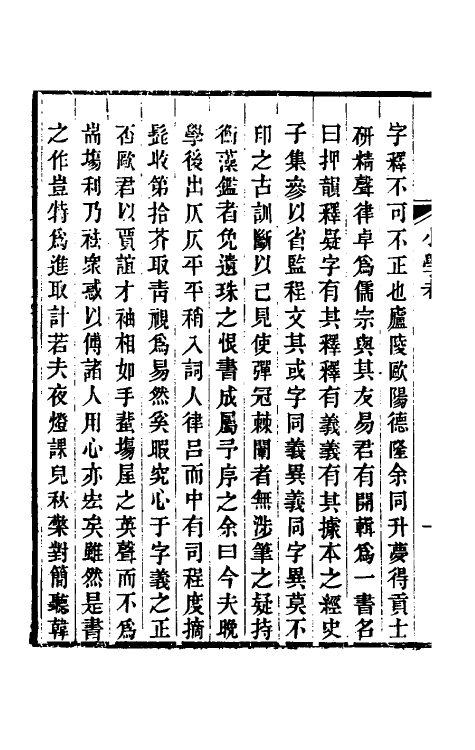 字釋不可不正也廬陵歐陽德隆余同升夢得貢士
研精聲律卓爲儒宗與其友易君有開輯爲一書名
曰押韻釋疑字有其釋釋有義義有其據本之經史
子集參以省監程文其或字同義異義同字異莫不
印之古訓斷以己見使彈冠棘闈者無涉筆之疑持
衡藻鑑者免遺珠之恨書成屬予序之余曰今夫晚
學後出仄仄平平稍入詞人律呂而中有司程度摘
髭收第拾芥取靑視爲易然奚暇究心于字義之正
否歐君以賈誼才袖相如手蜚塲屋之英聲而不爲
耑塲利乃祛衆惑以傅諸人用心亦宏矣雖然是書
之作豈特爲進取計若夫夜燈課兒秋檠對簡聽韓
小學考